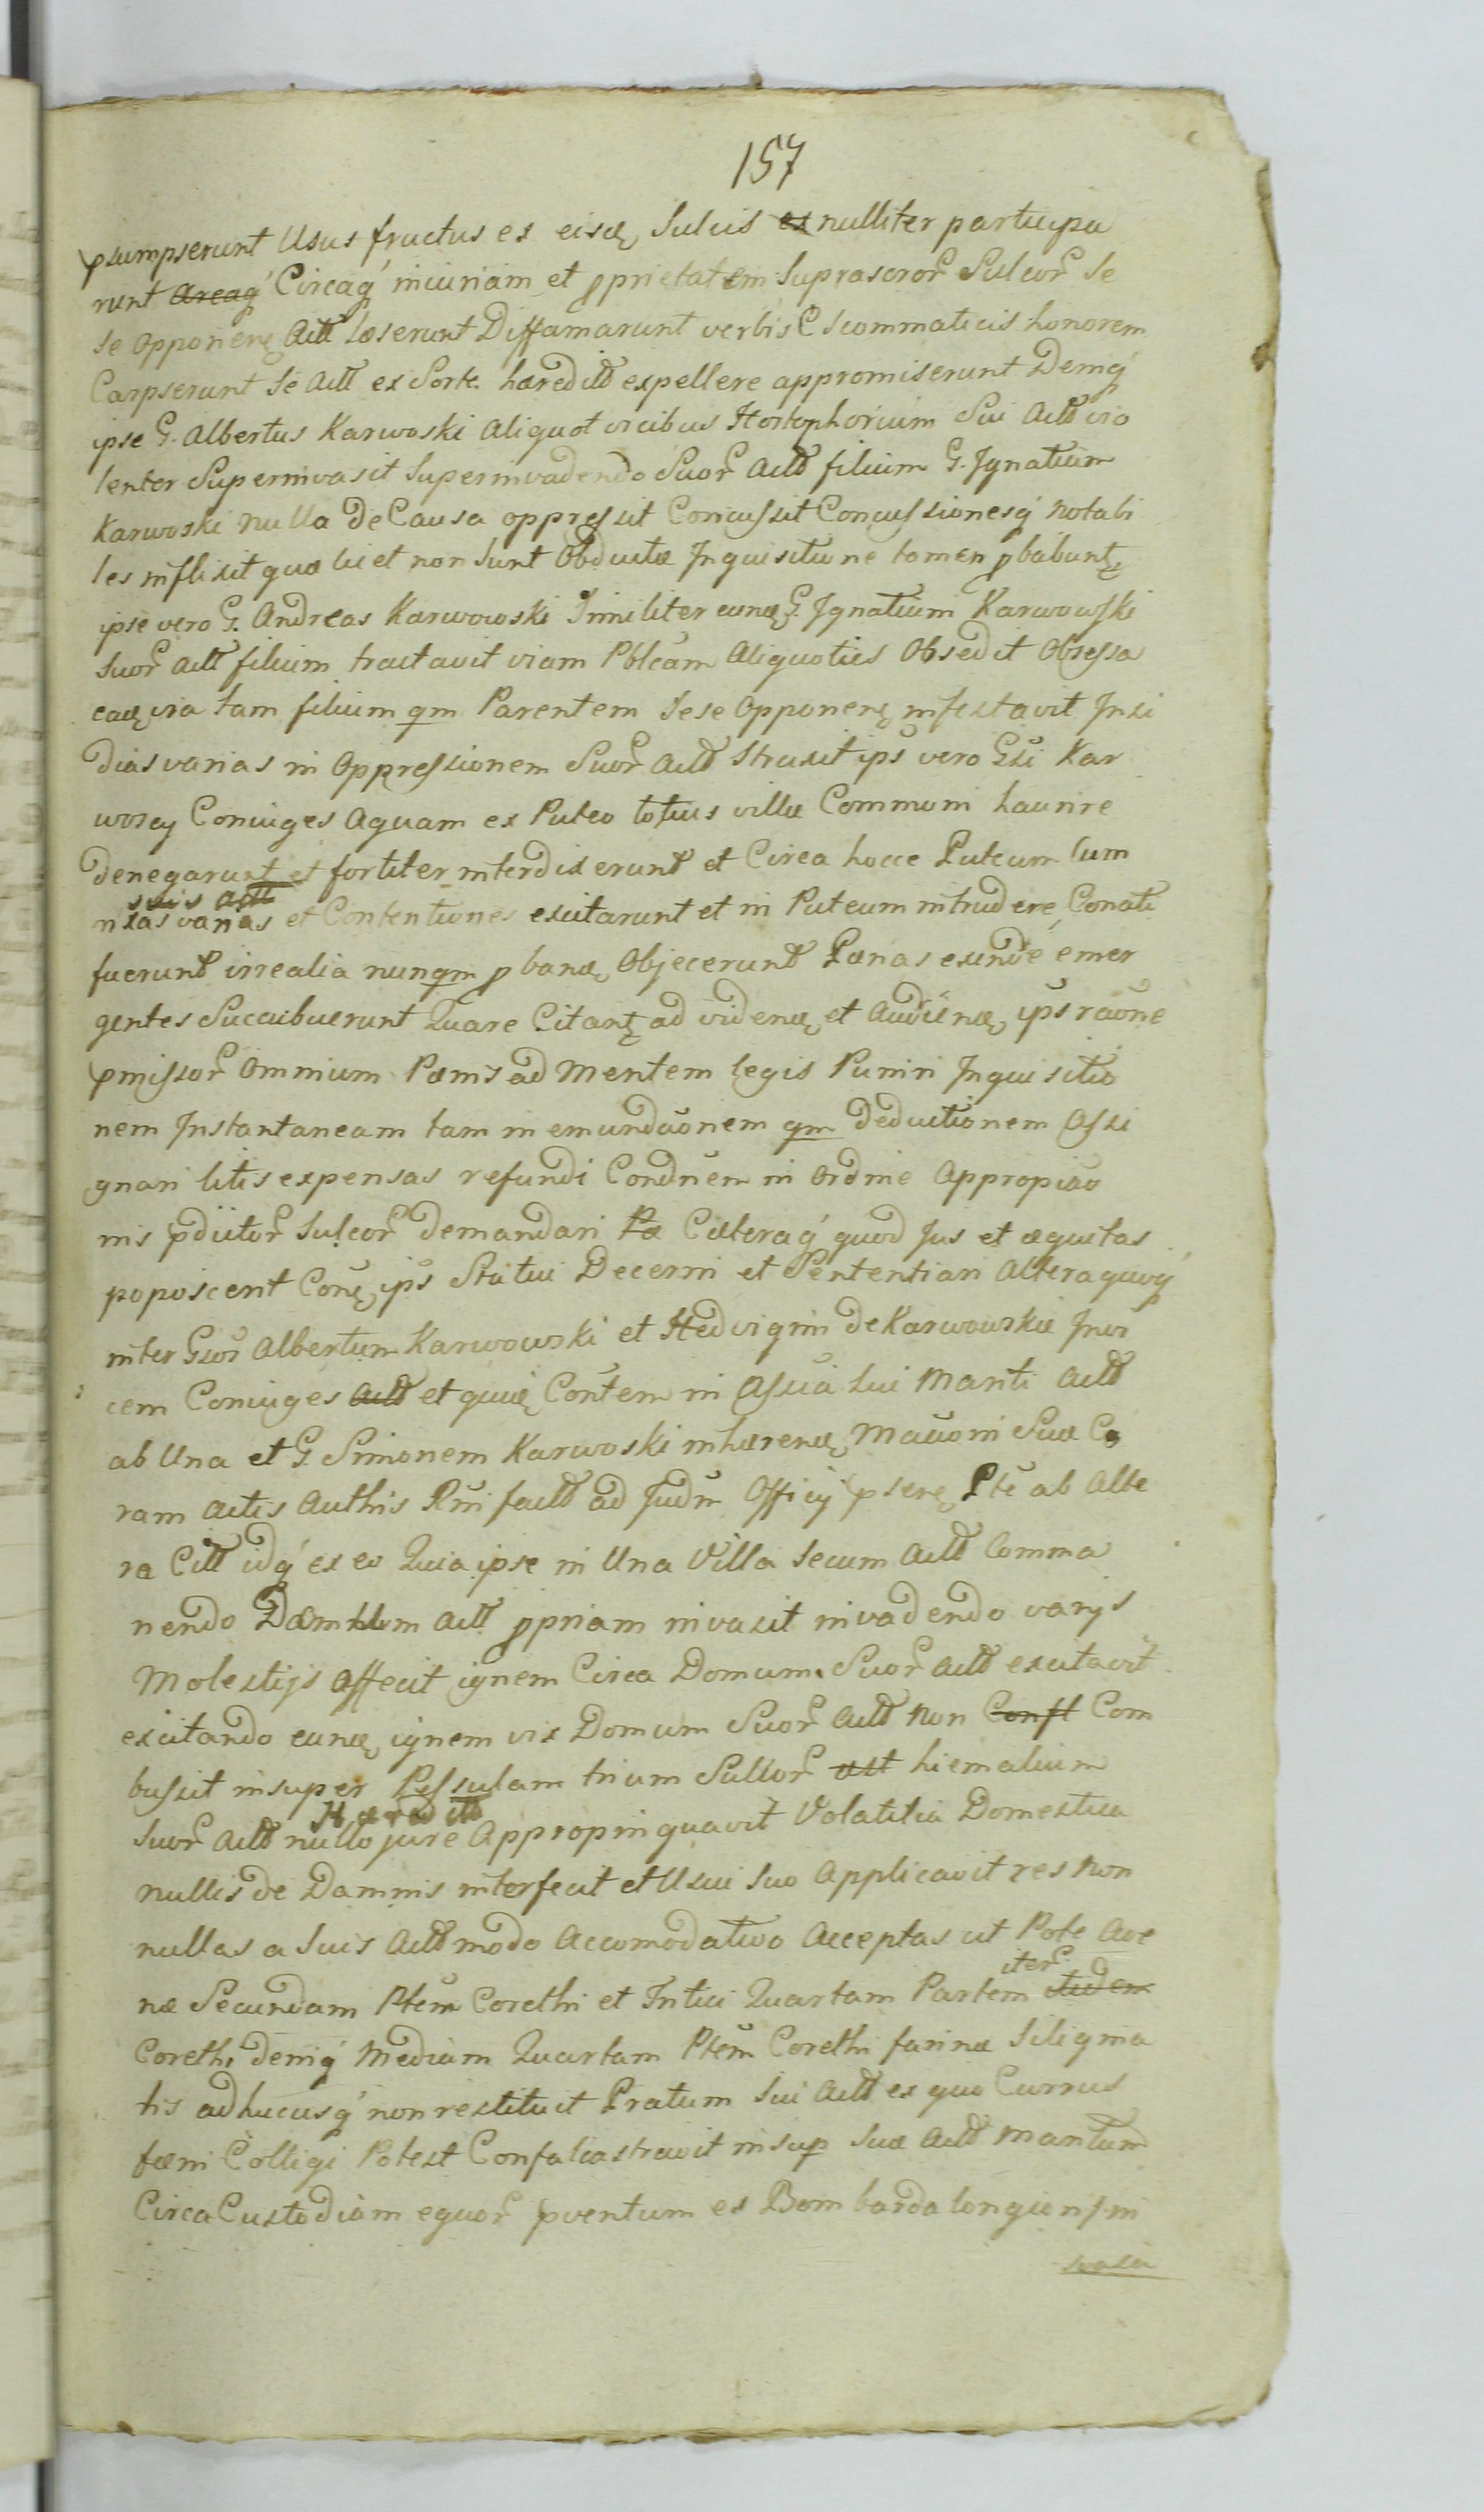 157
psumpserunt Usus fructus ex eisdę Sulcis ex nulliter participa
runt areaq́ Circaq́ iniuriam et pprietatem Suprascror Sulcor Se
se opponenę Actt læserunt Diffamarunt verbis Scommaticis honorem
Carpserunt Se Actt ex Sorte hæreditt expellere appromiserunt Deniq́
ipse G. Albertus Karwoski Aliquot vicibus Hortophorium Sui Actt vio
lenter Superinvasit Superinvadendo Suor Actt filium G. Jgnatium
Karwoski nulla de Causa oppressit Concussit Concussionesq́ notabi
les inflixit quæ licet non sunt Obductæ Jnquisitione tamen pbabuntę
ipse vero G. Andreas Karwowski Similiter eundę G. Jgnatium Karwowski
Suor Actt filium tractavit viam Pblcam Aliquoties Obsedit Obsessa
eadę via tam filium qm Parentem sese Opponenę infestavit Jnsi
dias varias in Oppressionem Suor Actt struxit ips vero Gsi Kar
woscy Coniuges Aquam ex Puteo totius villæ Communi haurire
denegarunt et fortiter interdixerunt et Circa hocce Puteum Cum
suis actt
nxas varias et Contentiones excitarunt et in Puteum intrudere Conati
fuerunt irrealia nunqm pbandę Objecerunt Pænas exinde emer
gentes Succubuerunt Quare Citantę ad videndę et Audiendę ips raone
pmissor Omnium Pænis ad Mentem legis Puniri Jnquisitio
nem Jnstantaneam tam in emundaonem qm Deductionem Assi
gnari litis expensas refundi Condnem in Ordine Appropiao
nis pdictor Sulcor demandari Pæ Cæteraq́ quod Jus et æquitas
poposcerit Conę ips Statui Decerni et Sententiari Alteraquoq́
inter Gsos Albertum Karwowski et Hedvigim de Karwowskie Jnvi
cem Coniuges Actt et quidę Contem in Assia Sui Mariti Actt
ab Una et G. Simonem Karwoski inhærendę Mauoni Suæ Co
ram Actis Authis Rni factt ad Judm Officij psenę Pte ab Alte
ra Citt idq́ ex eo Quia ipse in Una Villa Secum Actt Comma
nendo Actt ppriam invasit invadendo varijs
Molestijs Affecit ignem Circa Domum Suor Actt excitavit
excitando eundę ignem vix Domum Suor Actt non Confl Com
bussit insuper Pessulam trium Sulcor est hiemalium
Hæreditt
Suor Actt nullo jure Appropinquavit Volatilia Domestica
nullis de Damnis interfecit et Usui Suo Applicavit res non
nullas a Suis Actt modo Accomodativo Acceptas ut Pote Ave
næ Secundam Ptem Corethi et Tritici Quartam Partem iter itidem
Corethi deniq́ Mediam Quartam Ptem Corethi farinæ Siligina
tis adhucusq́ non restituit Pratum Sui Actt ex quo Currus
fæni Colligi Potest Confalcastravit insup Suæ Actt Maritum
Circa Custodiam equor pventum ex Bombarda longiori in